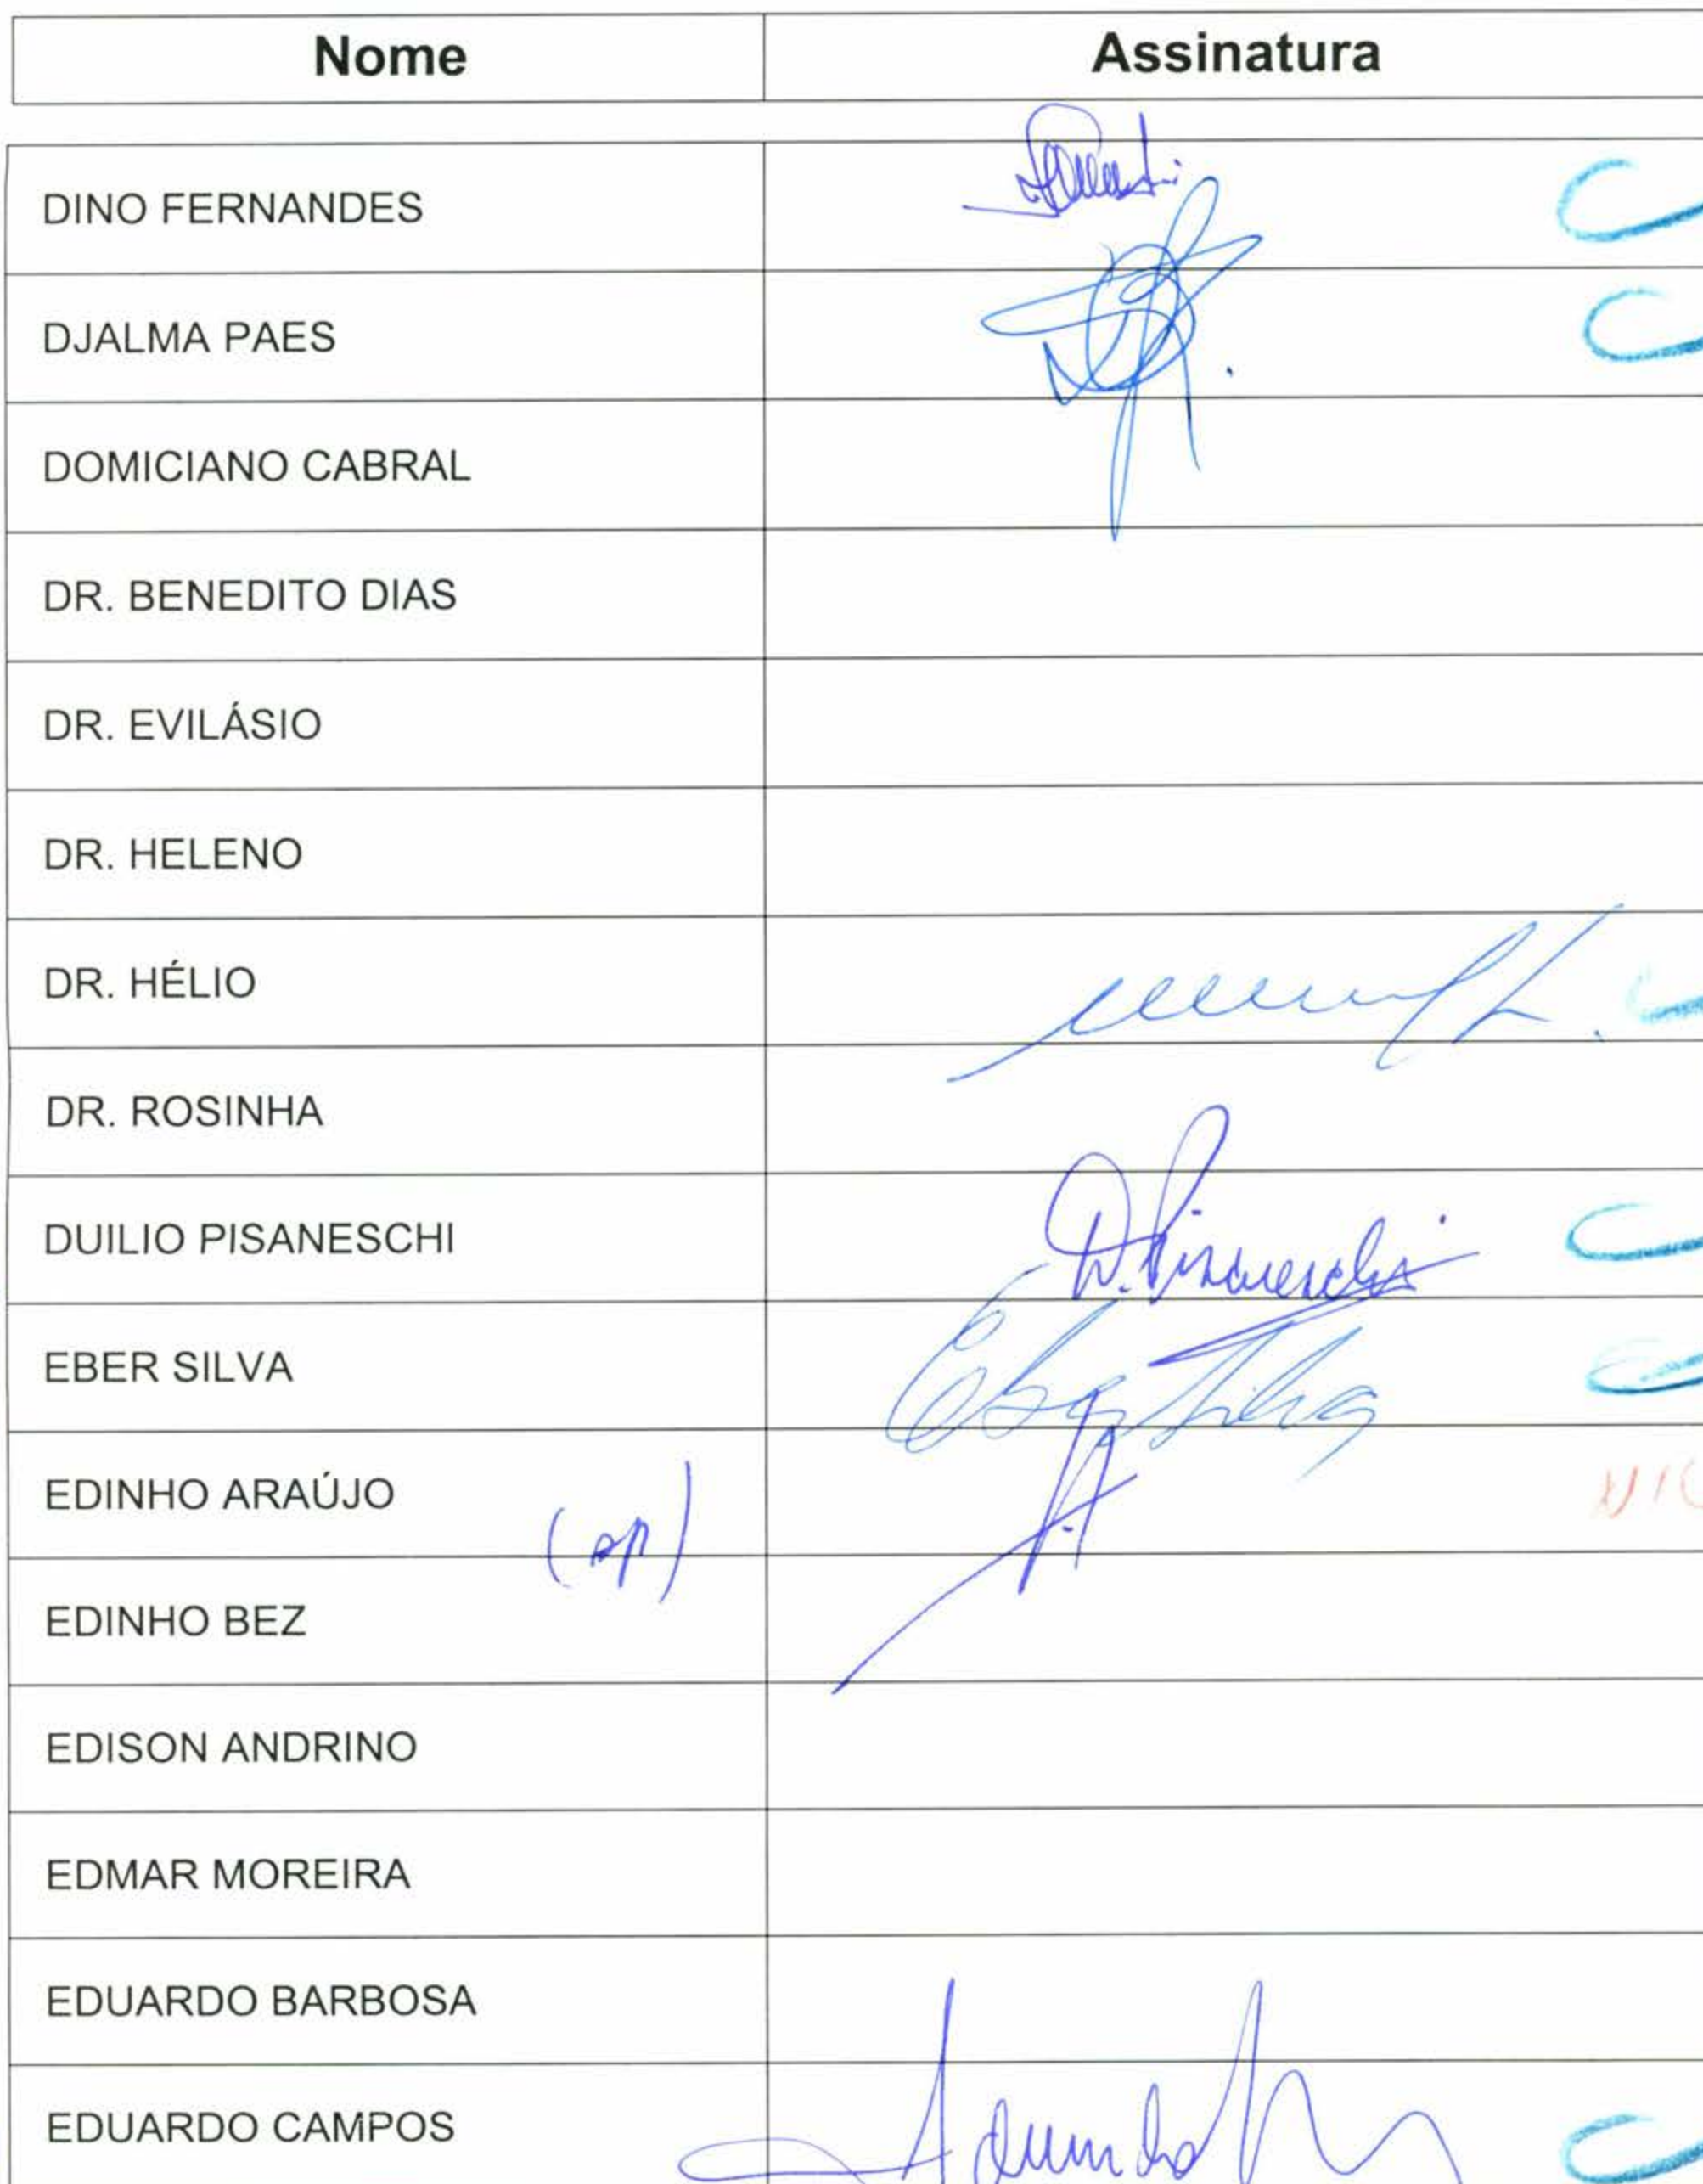 Nome Assinatura
DINO FERNANDES
DJALMA PAES
DOMICIANO CABRAL
DR. BENEDITO DIAS
DR. EVILÁSIO
DR. HELENO
DR. HÉLIO
DR. ROSINHA
DUILIO PISANESCHI D. Pisaneschi
EBER SILVA Eber Silva
EDINHO ARAÚJO
EDINHO BEZ
EDISON ANDRINO
EDMAR MOREIRA
EDUARDO BARBOSA
EDUARDO CAMPOS